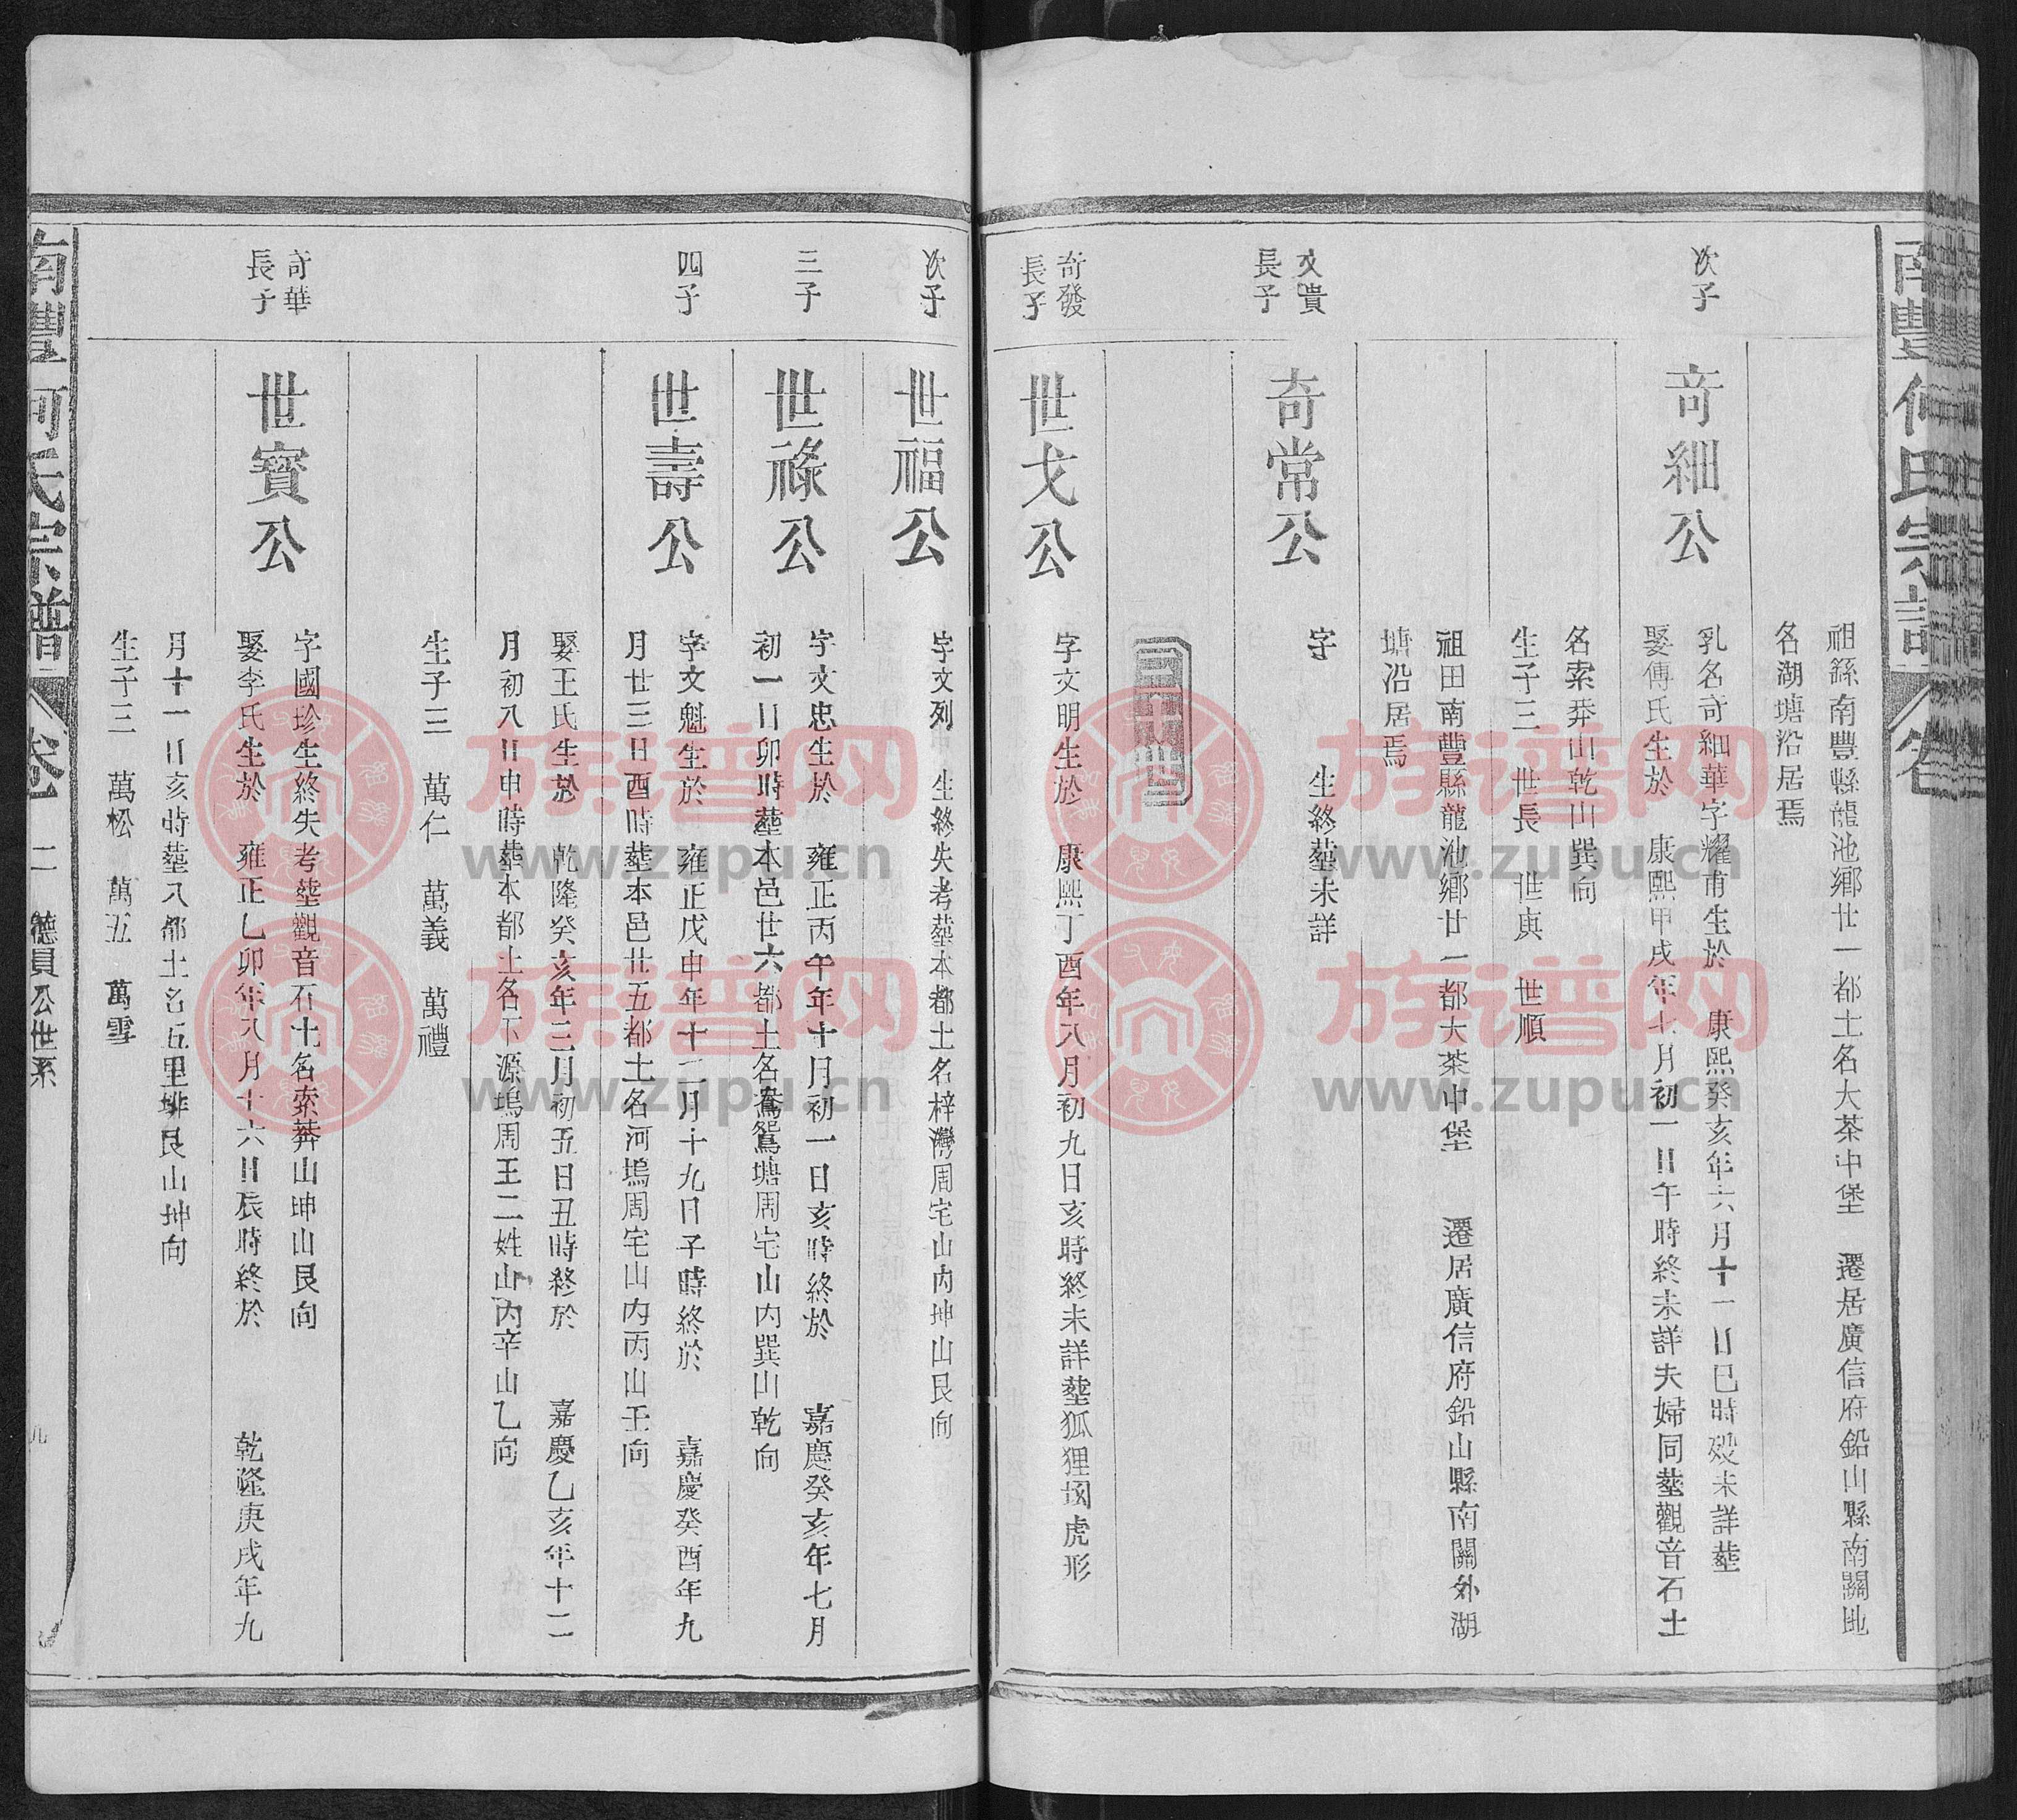 祖籍南豐縣龍池鄉廿一都土名大茶中堡　遷居廣信府鉛山縣南關地
名湖塘沿居焉
次子
奇細公
乳名奇細華字耀甫生於　康熙癸亥年六月十一日巳時歿未詳塟
娶傅氏生於　康熙甲戌年七月初一日午時終未詳夫婦同塟觀音石土
名索莽山乾山巽向
生子三　世長　世庚　世順
祖田南豐縣龍池鄉廿一都大茶中堡　遷居廣信府鉛山縣南關外湖
塘沿居焉
文貴長子
奇常公
字　　生終塟未詳
奇發長子
世戈公
字文明生於　康熙丁酉年八月初九日亥時終未詳塟狐狸㘭虎形
次子
世福公
字文列　生終失考塟本都土名梓灣周宅山內坤山艮向
三子
世祿公
字文忠生於　雍正丙午年十月初一日亥時終於　嘉慶癸亥年七月
初一日卯時塟本邑廿六都土名鴛鴦塘周宅山內巽山乾向
四子
世壽公
字文魁生於　雍正戊申年十二月十九日子時終於　嘉慶癸酉年九
月廿三日酉時塟本邑廿五都土名河塢周宅山內丙山壬向
娶王氏生於　乾隆癸亥年三月初五日丑時終於　嘉慶乙亥年十二
月初八日申時塟本都土名下源塢周王二姓山內辛山乙向
生子三　萬仁　萬義　萬禮
奇華長子
世寶公
字國珍生終失考塟觀音石土名索莽山坤山艮向
娶李氏生於　雍正乙卯年八月十六日辰時終於　乾隆庚戌年九
月十一日亥時塟八都土名五里排艮山坤向
生子三　萬松　萬五　萬雪
南豐何氏宗譜
卷二　德員公世系
九
族谱网
www.zupu.cn
族谱网
www.zupu.cn
族谱网
www.zupu.cn
族谱网
www.zupu.cn